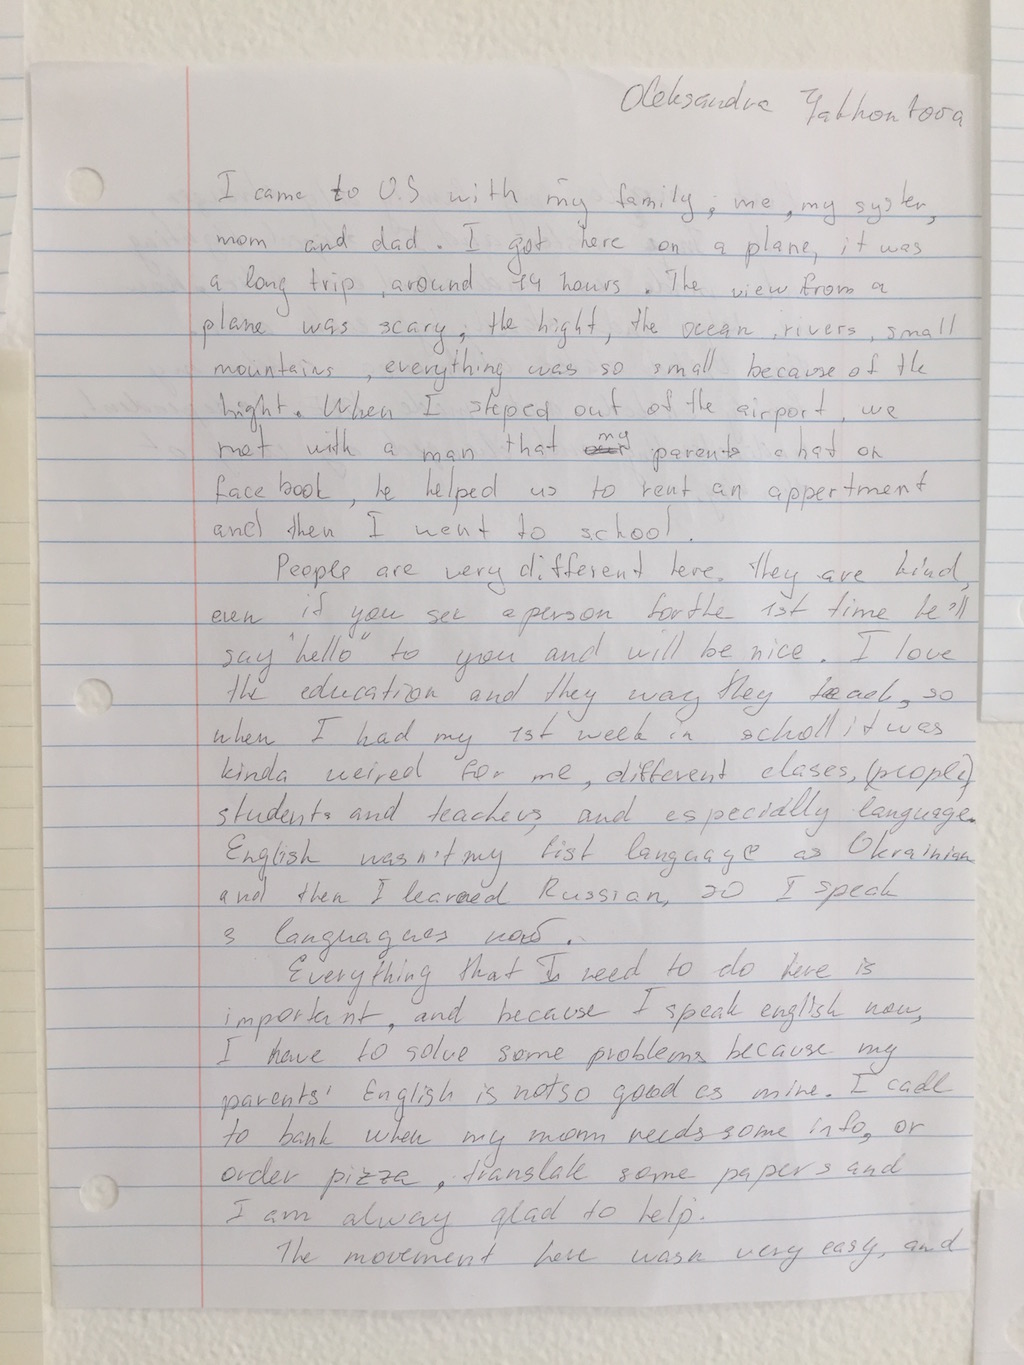 Oleksandra Yakhontova
I came to U.S with my family; me, my syster,
mom and dad. I got here on a plane, it was
a long trip, around 14 hours. The view from a
plane was scary, the hight, the ocean, rivers, small
mountains, everything was so small because of the
hight. When I steped out of the airport, we
met with a man that my parents chat on
facebook, he helped us to rent an appertment
and then I went to school.
People are very different here, they are kind,
even if you see a person for the 1st time he'll
say "hello" to you and will be nice. I love
the education and they way they teach, so
when I had my 1st week in scholl it was
kinda weired for me, different clases, (people)
students and teachers, and especially language.
English wasn't my fist language as Ukrainian
and then I learned Russian, so I speak
3 languagues now.
Everything that I need to do here is
important, and because I speak english now,
I have to solve some problems because my
parents' English is not so good as mine. I call
to bank when my mom needs some info, or
order pizza, translate some papers and
I am alway glad to help.
The movement here wasn very easy, and